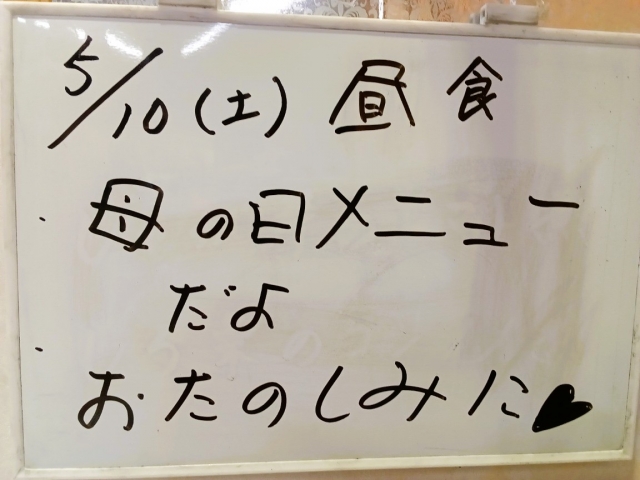 5/10(土) 昼食
・母の日メニュー
だよ
・おたのしみに♥